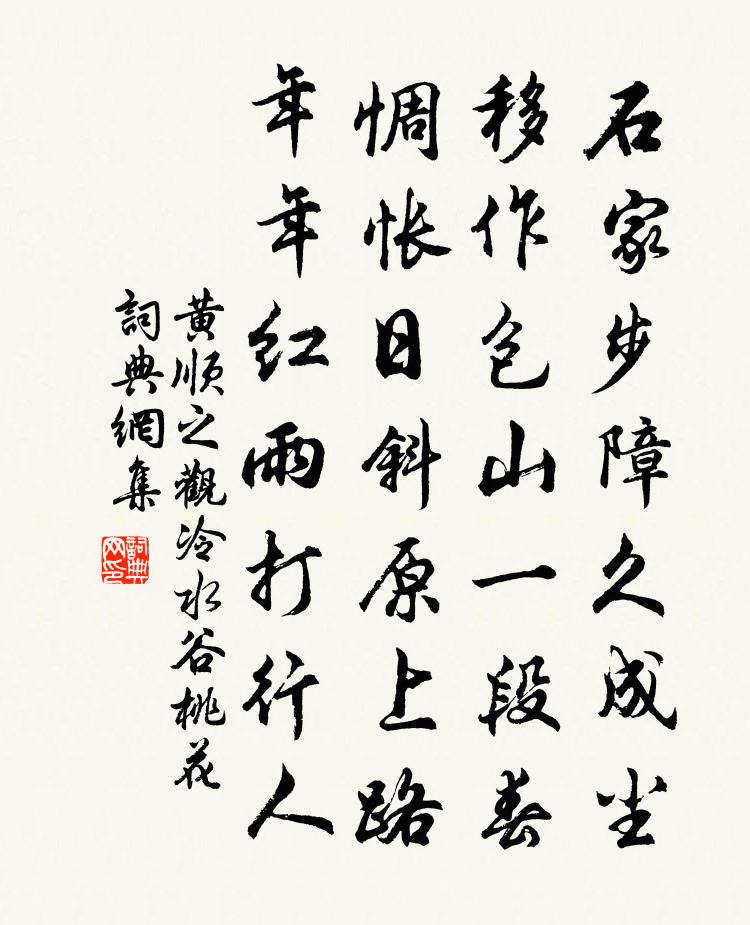 石家步障久成尘
移作包山一段春
惆怅日斜原上路
年年红雨打行人
黄顺之觀冷水谷桃花
詞典網集
詞典网印